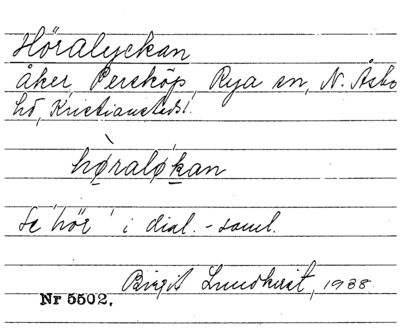 Höralyckan
åker, Perstorp, Rya sn, N. Åsbo
hd, Kristianstads l.
hø̀ralø̀kan
Se "hör" i dial.-saml.
Birgit Lundkvist, 1938
Nr 5502.